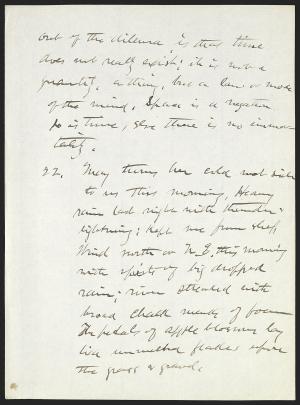 out of the dilema, is that time
does not really exist; it is not a
quantity, a thing, but a law or mode
of the mind. Space is a negation
so is time, else there is no immor-
tality.
22. May turns her cold wet side
to us this morning. Heavy
rain last night with thunder &
lightning; kept me from sleep.
Wind north or N.E. this morning
with spirts of big dropped
rain; river streaked with
broad chalk marks of foam
The petals of apple blossoms lay
like unmelted flakes upon
the grass & ground.